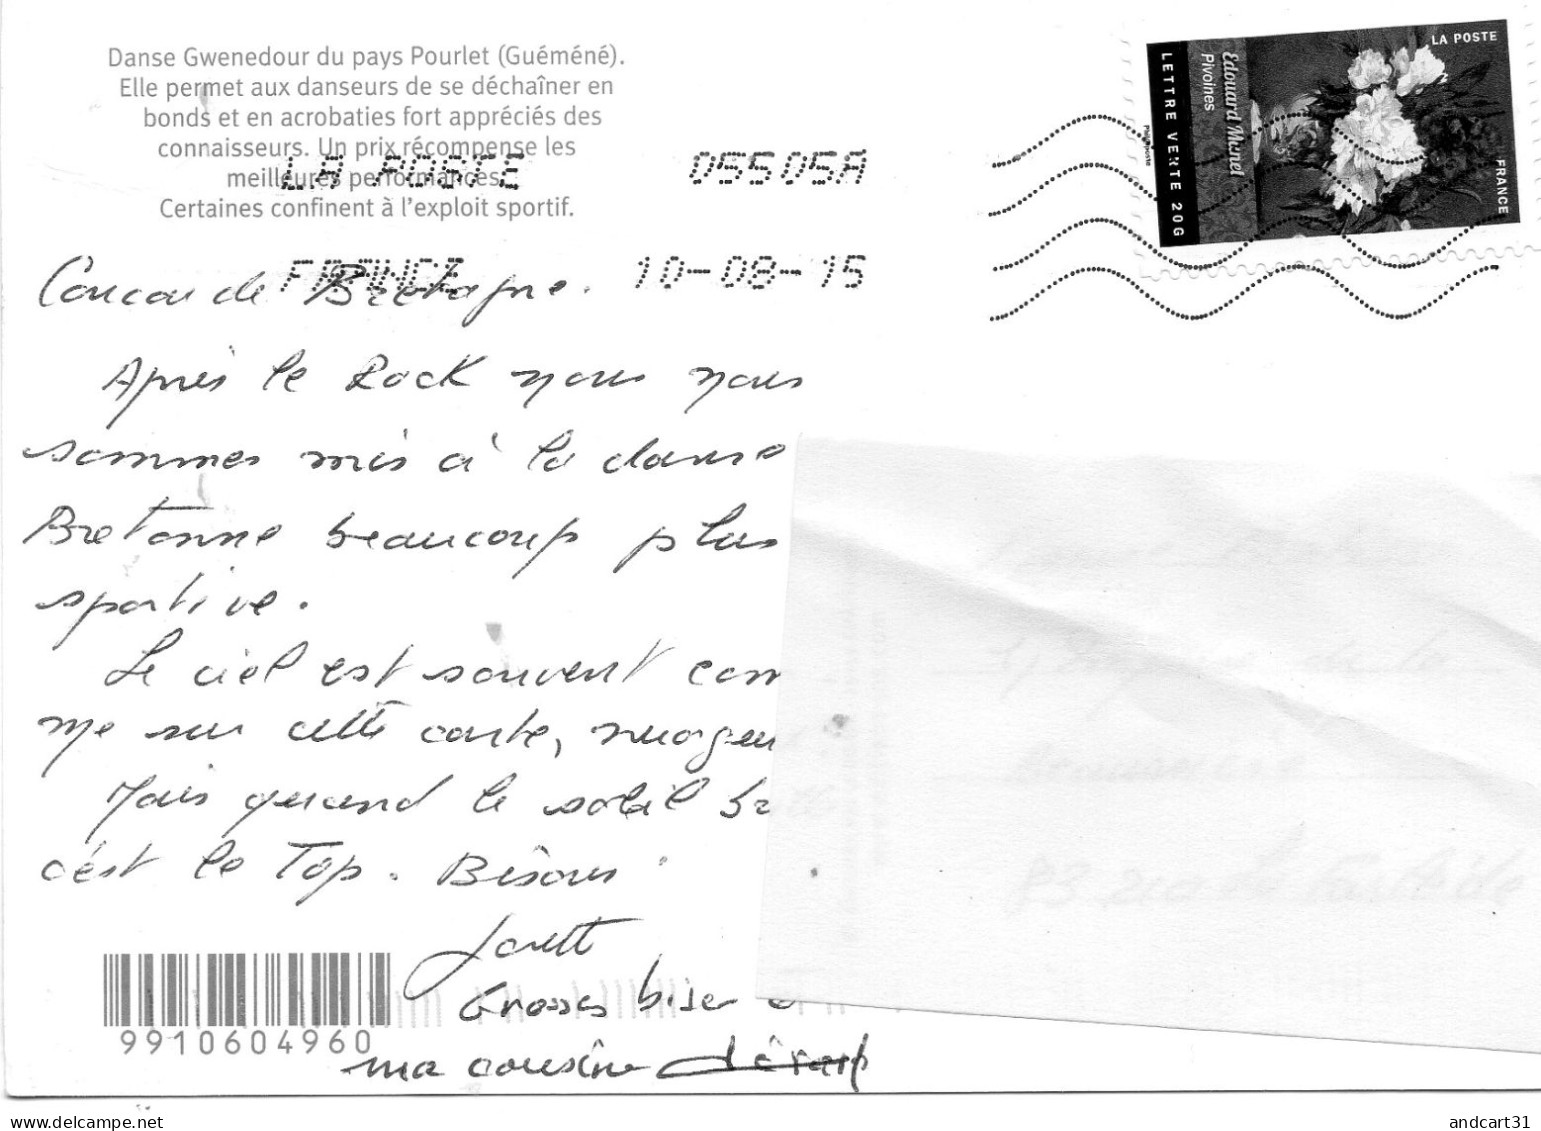 Danse Gwenedour du pays Pourlet (Guéméné).
Elle permet aux danseurs de se déchaîner en
bonds et en acrobaties fort appréciés des
connaisseurs. Un prix récompense les
meilleures performances.
Certaines confinent à l'exploit sportif.
LA POSTE 05505A
FRANCE 10-08-15
LA POSTE
FRANCE
Edouard Manet
Pivoines
LETTRE VERTE 20G
Phil@poste
Coucou de Bretagne.
Après le Rock nous nous
sommes mis à la danse
Bretonne beaucoup plus
sportive.
Le ciel est souvent com
me sur cette carte, nuageux
Mais quand le soleil
c'est le Top. Bisous
Grosses bises
ma cousine
9910604960
www.delcampe.net
andcart31